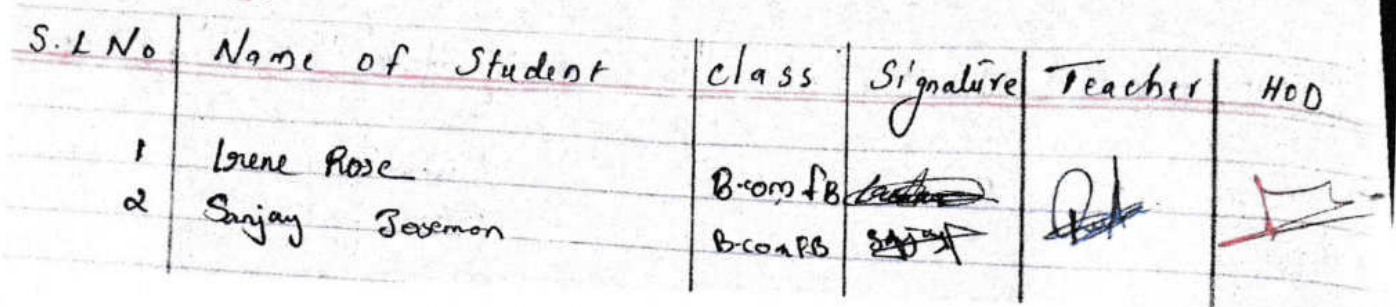 S.L No Name of Student class Signature Teacher HOD
1 Irene Rose B.com fB
2 Sanjay Josemon B.com FB Sanjay